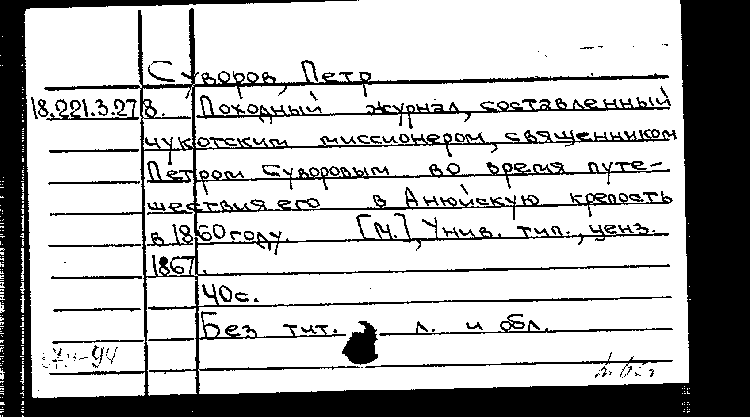 Суворов, Петр
18.221.3.278. Походный журнал, составленный
чукотским миссионером, священником
Петром Суворовым во время путе-
шествия его в Анюйскую крепость
в 1860 году. [М.], Унив. тип., ценз.
1867.
40с.
Без тит. л. и обл.
-94